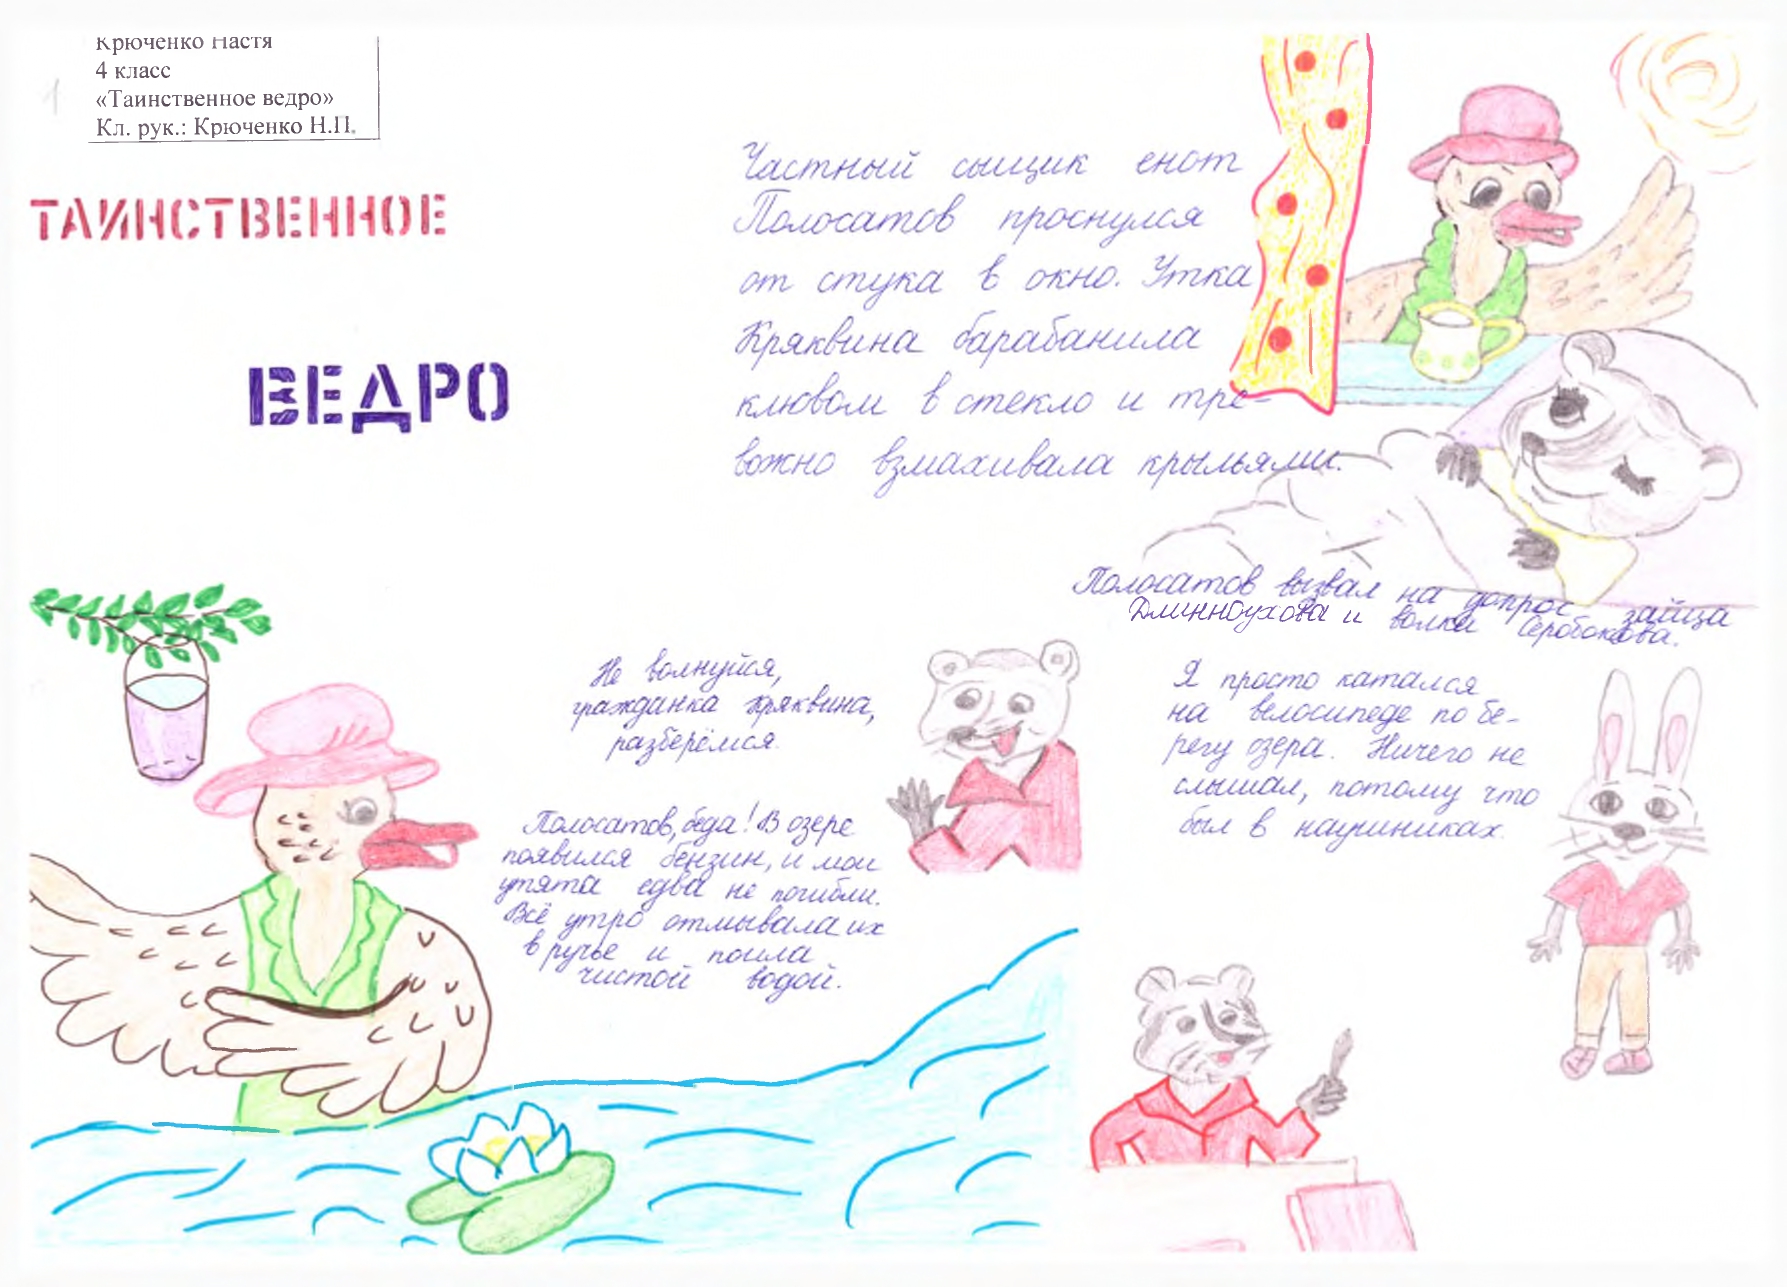 Крюченко Настя
4 класс
«Таинственное ведро»
Кл. рук.: Крюченко Н.П.
1
ТАИНСТВЕННОЕ
ВЕДРО
Частный сыщик енот
Полосатов проснулся
от стука в окно. Утка
Кряквина барабанила
клювом в стекло и тре-
вожно взмахивала крыльями.
Не волнуйся,
гражданка Кряквина,
разберёмся.
Полосатов, беда! В озере
появился бензин, и мои
утята едва не погибли.
Всё утро отмывала их
в ручье и поила
чистой водой.
Полосатов вызвал на допрос зайца
Длинноухова и волка Серобокова.
Я просто катался
на велосипеде по бе-
регу озера. Ничего не
слышал, потому что
был в наушниках.